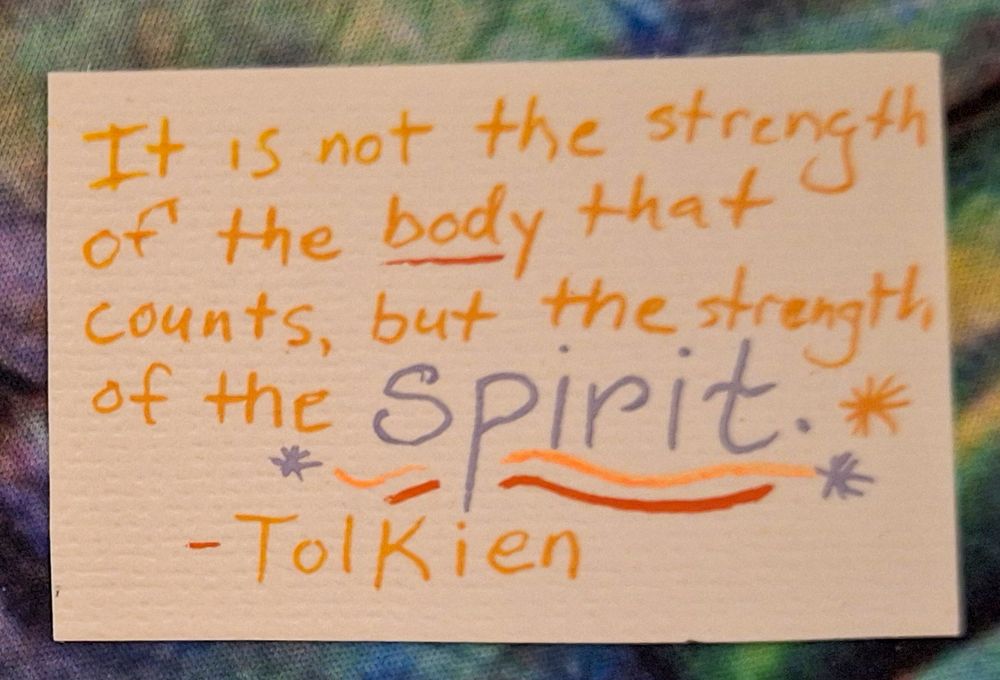 It is not the strength
of the body that
counts, but the strength
of the Spirit.
- Tolkien